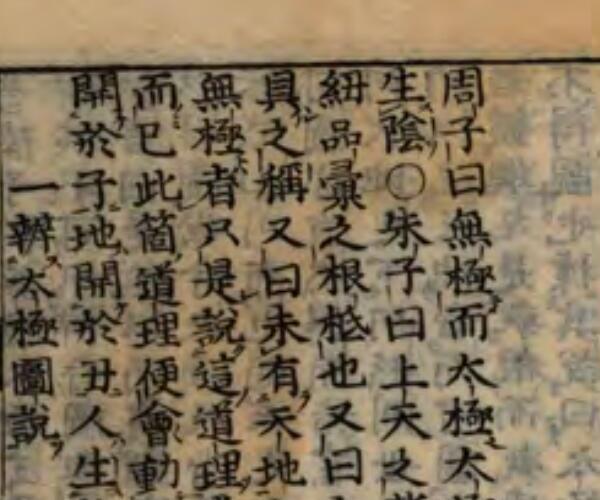 周子曰無極而太極太
生陰○朱子曰上天之
紐品彙之根柢也又曰
具之稱又曰未有天地
無極者只是說這道理
而已此箇道理便會動
開於子地開於丑人生
一辨太極圖說